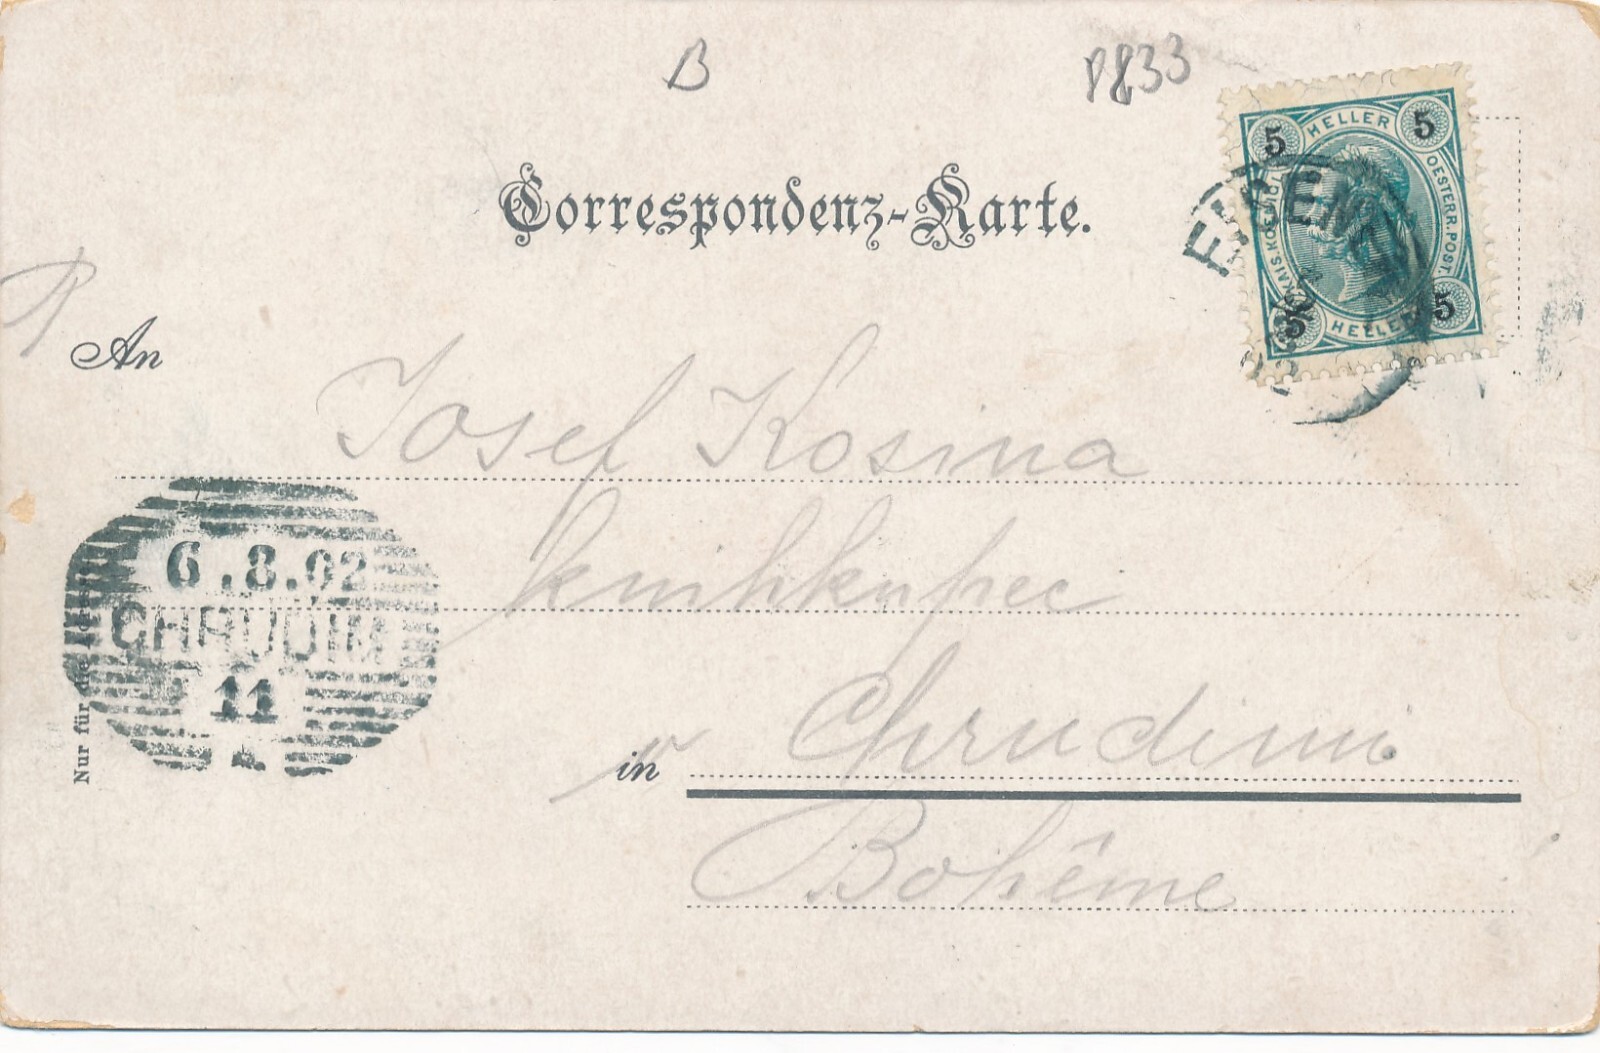 B
Correspondenz-Karte.
5 HELLER 5
KAIS. KOENIGL. OESTERR. POST.
5 HELLER 5
An
Josef Kosina
knihkupec
in Chrudimi
Bohême
6.8.02
CHRUDIM
11
Nur für die